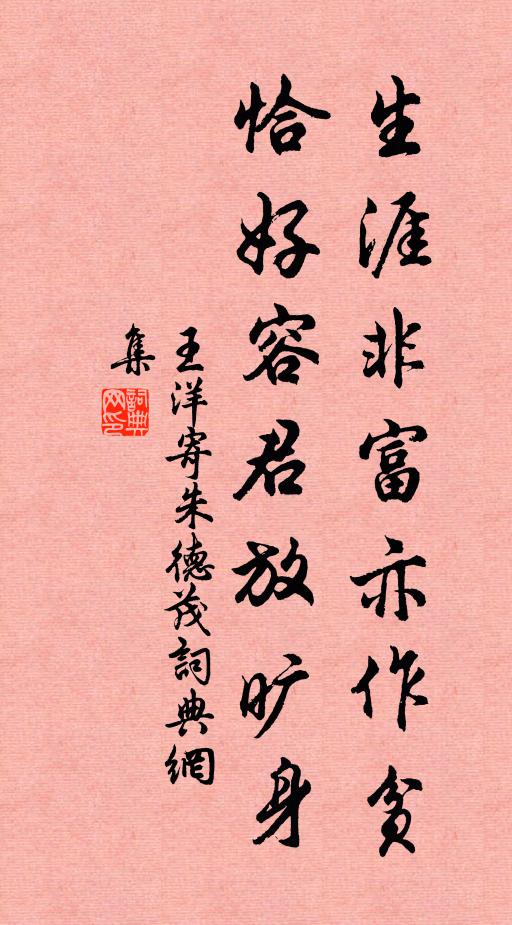 生涯非富亦作贫
恰好容君放旷身
王洋寄朱德茂詞典網
集
詞典網印